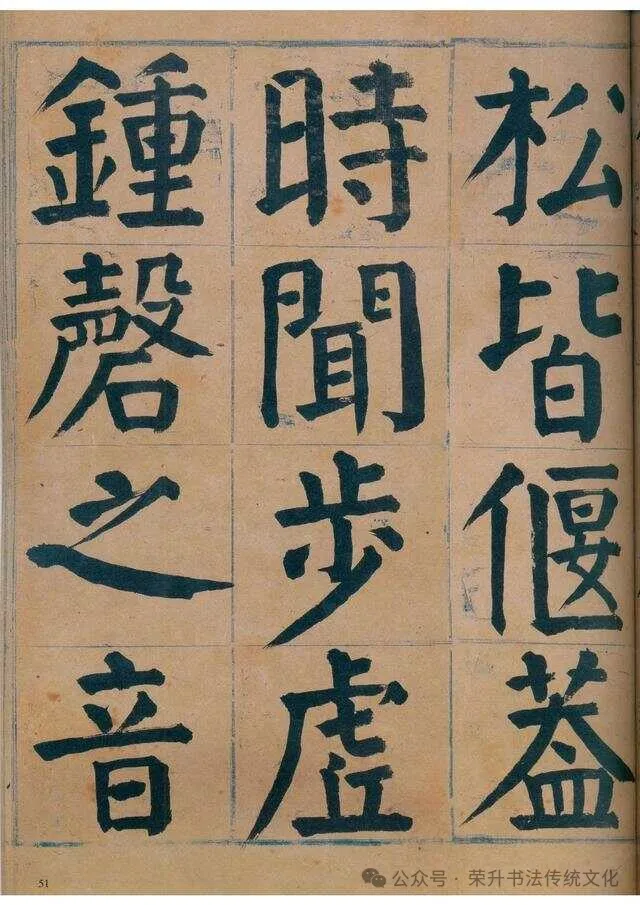 松皆偃蓋
時聞步虛
鍾磬之音
51
公众号 · 荣升书法传统文化